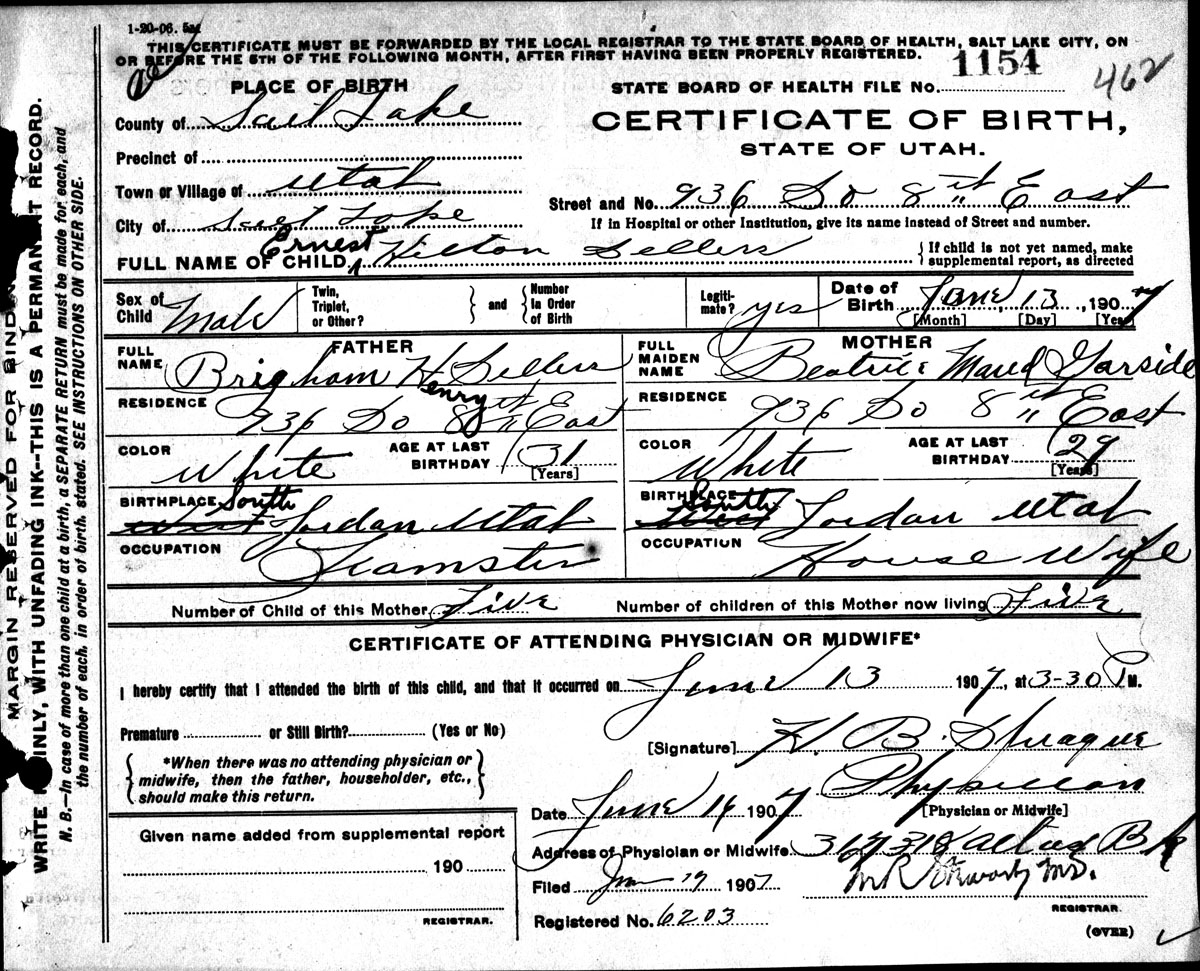 1-20-06.
THIS CERTIFICATE MUST BE FORWARDED BY THE LOCAL REGISTRAR TO THE STATE BOARD OF HEALTH, SALT LAKE CITY, ON
OR BEFORE THE 5TH OF THE FOLLOWING MONTH, AFTER FIRST HAVING BEEN PROPERLY REGISTERED.
PLACE OF BIRTH
STATE BOARD OF HEALTH FILE NO. 1154
462
CERTIFICATE OF BIRTH,
STATE OF UTAH.
County of Salt Lake
Precinct of
Town or Village of Utah
Street and No. 936 So 8 th East
City of Salt Lake
If in Hospital or other Institution, give its name instead of Street and number.
FULL NAME OF CHILD Ernest Hilton Sellers
If child is not yet named, make
supplemental report, as directed
Sex of Child Male
Twin, Triplet, or Other? and Number In Order of Birth
Legitimate? yes
Date of Birth June 13, 1907
[Month] [Day] [Year]
FATHER
MOTHER
FULL NAME Brigham Henry Sellers
FULL MAIDEN NAME Beatrice Maud Garside
RESIDENCE 936 So 8 th East
RESIDENCE 936 So 8 th East
COLOR White AGE AT LAST BIRTHDAY 31 [Years]
COLOR White AGE AT LAST BIRTHDAY 29 [Years]
BIRTHPLACE South Jordan Utah
BIRTHPLACE South Jordan Utah
OCCUPATION Teamster
OCCUPATION House Wife
Number of Child of this Mother Five
Number of children of this Mother now living Five
CERTIFICATE OF ATTENDING PHYSICIAN OR MIDWIFE*
I hereby certify that I attended the birth of this child, and that it occurred on June 13 1907, at 3-30 P M.
Premature or Still Birth? (Yes or No)
[Signature] H. B. Sprague
*When there was no attending physician or
midwife, then the father, householder, etc.,
should make this return.
Physician
[Physician or Midwife]
Date June 14 1907
Given name added from supplemental report
190
REGISTRAR.
Address of Physician or Midwife 317 318 Atlas Bk
Filed Jun 19 1907
M.D.
REGISTRAR.
Registered No. 6203
(OVER)
MARGIN RESERVED FOR BINDIN
WRITE PLAINLY, WITH UNFADING INK--THIS IS A PERMANENT RECORD.
N. B.--In case of more than one child at a birth, a SEPARATE RETURN must be made for each, and
the number of each, in order of birth, stated. SEE INSTRUCTIONS ON OTHER SIDE.